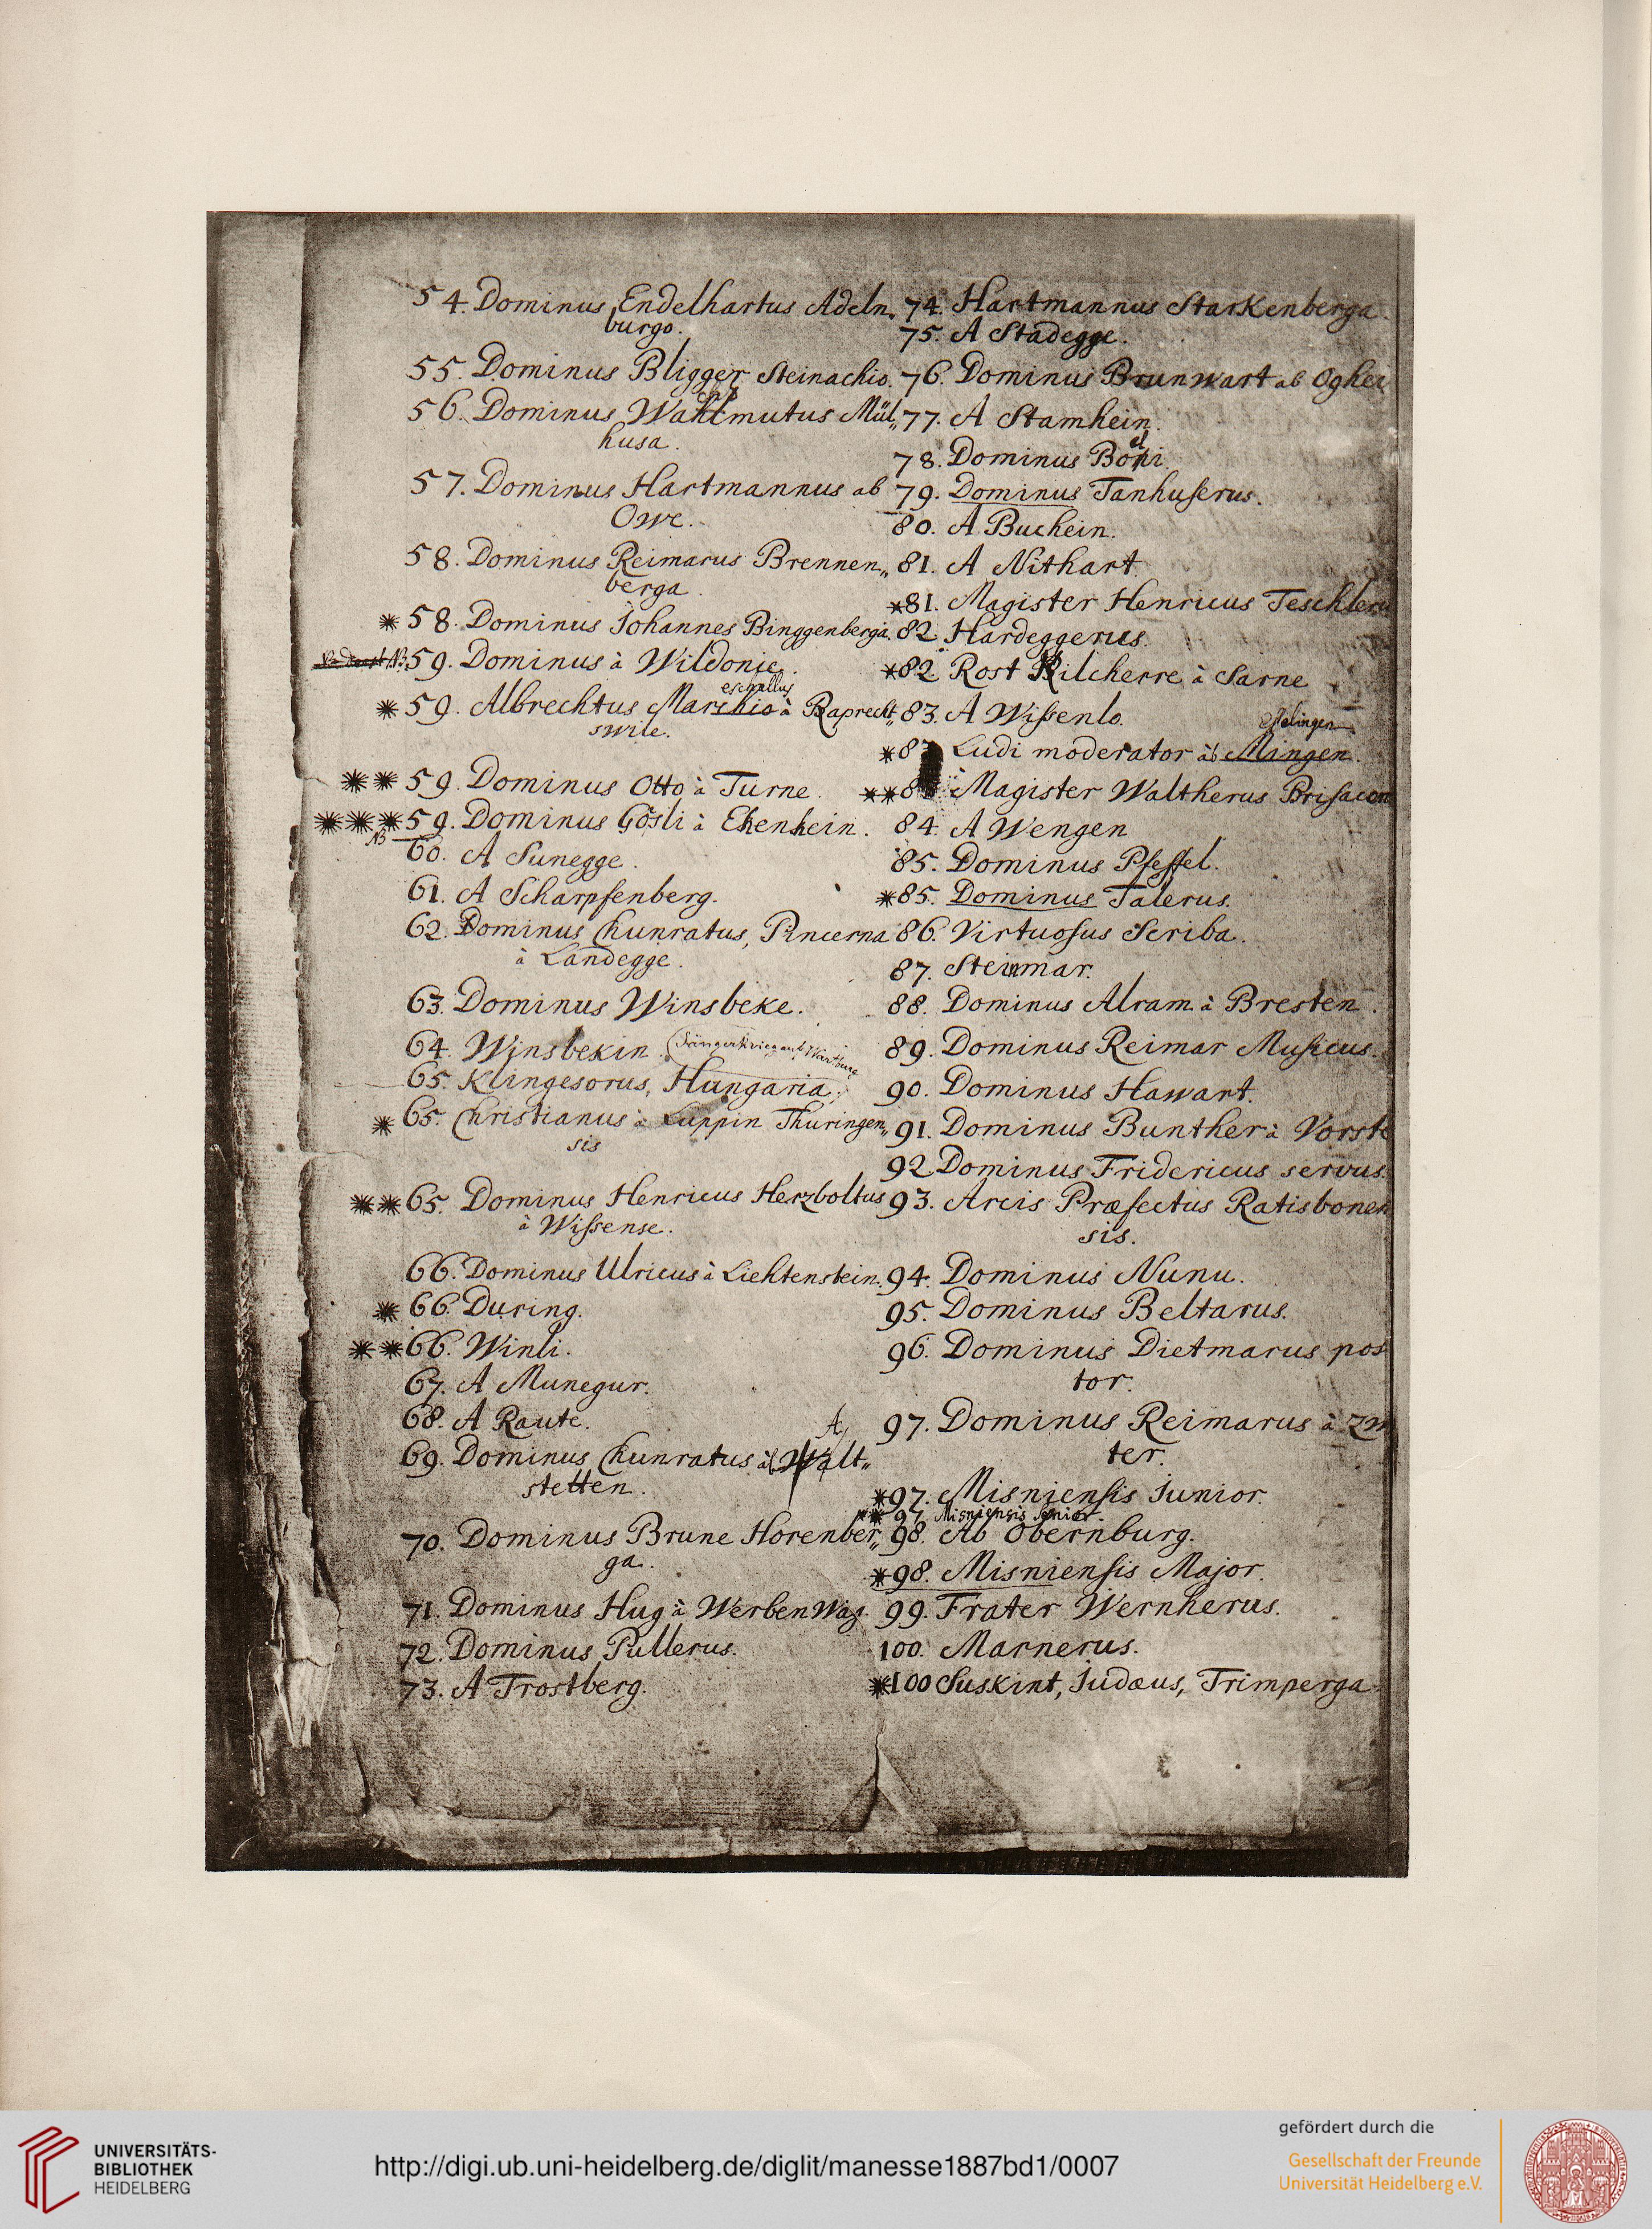 54. Dominus Endelhartus Adeln„
burgo.
55. Dominus Bligger Steinachio.
56. Dominus Wahlmutus Mül„
husa.
57. Dominus Hartmannus ab
Owe.
58. Dominus Reimarus Brennen„
berga.
*58. Dominus Johannes Binggenberga.
59. Dominus à Wildonie.
eschallus
*59. Albrechtus Marschio à Raprecht„
swile.
**59. Dominus Otto à Turne.
***59. Dominus Gösli à Ehenhein.
NB
60. A Sunegge.
61. A Scharpfenberg.
62. Dominus Chunratus, Pincerna
à Landegge.
63. Dominus Winsbeke.
64. Winsbekin. (Sängerkrieg auf Wartburg
65. Klingesorus, Hungaria.
*65. Christianus à Luppin Thuringen„
sis
**65. Dominus Henricus Herzboltus
à Wissense.
66. Dominus Ulricus à Liehtenstein.
*66. During.
**66. Winli.
67. A Munegur.
68. A Raute.
69. Dominus Chunratus Alt„
stetten.
70. Dominus Brune Horenber„
ga.
71. Dominus Hug à Werbenwag.
72. Dominus Pullerus.
73. A Trostberg.
74. Hartmannus Starkenberga.
75. A Stadegge.
76. Dominus Brunwart ab Oghei
77. A Stamhein.
78. Dominus
79. Dominus Tanhuserus.
80. A Buchein.
81. A Nithart.
*81. Magister Henricus Teschleru
82. Hardeggerus.
*82. Rost Kilcherre à Sarne
83. A Wissenlo.
esselingen
*83. Ludi moderator ab Mingen.
**83. Magister Waltherus Brisacen
84. A Wengen
85. Dominus Pfeffel.
*85. Dominus Talerus.
86. Virtuosus Scriba.
87. Steinmar.
88. Dominus Alram à Bresten.
89. Dominus Reimar Musicus.
90. Dominus Hawart.
91. Dominus Bunther à Vorste
92. Dominus Fridericus servus.
93. Arcis Præfectus Ratisbonen
sis.
94. Dominus Nunu.
95. Dominus Beltarus.
96. Dominus Dietmarus pos
tor.
97. Dominus Reimarus à Zw
ter.
*97. Misniensis Junior.
**97. Misniensis Senior.
98. Ab Obernburg.
*98. Misniensis Major.
99. Frater Wernherus.
100. Marnerus.
*100 Suskint, Judæus, Trimperga.
UNIVERSITÄTS-
BIBLIOTHEK
HEIDELBERG
http://digi.ub.uni-heidelberg.de/diglit/manesse1887bd1/0007
gefördert durch die
Gesellschaft der Freunde
Universität Heidelberg e.V.